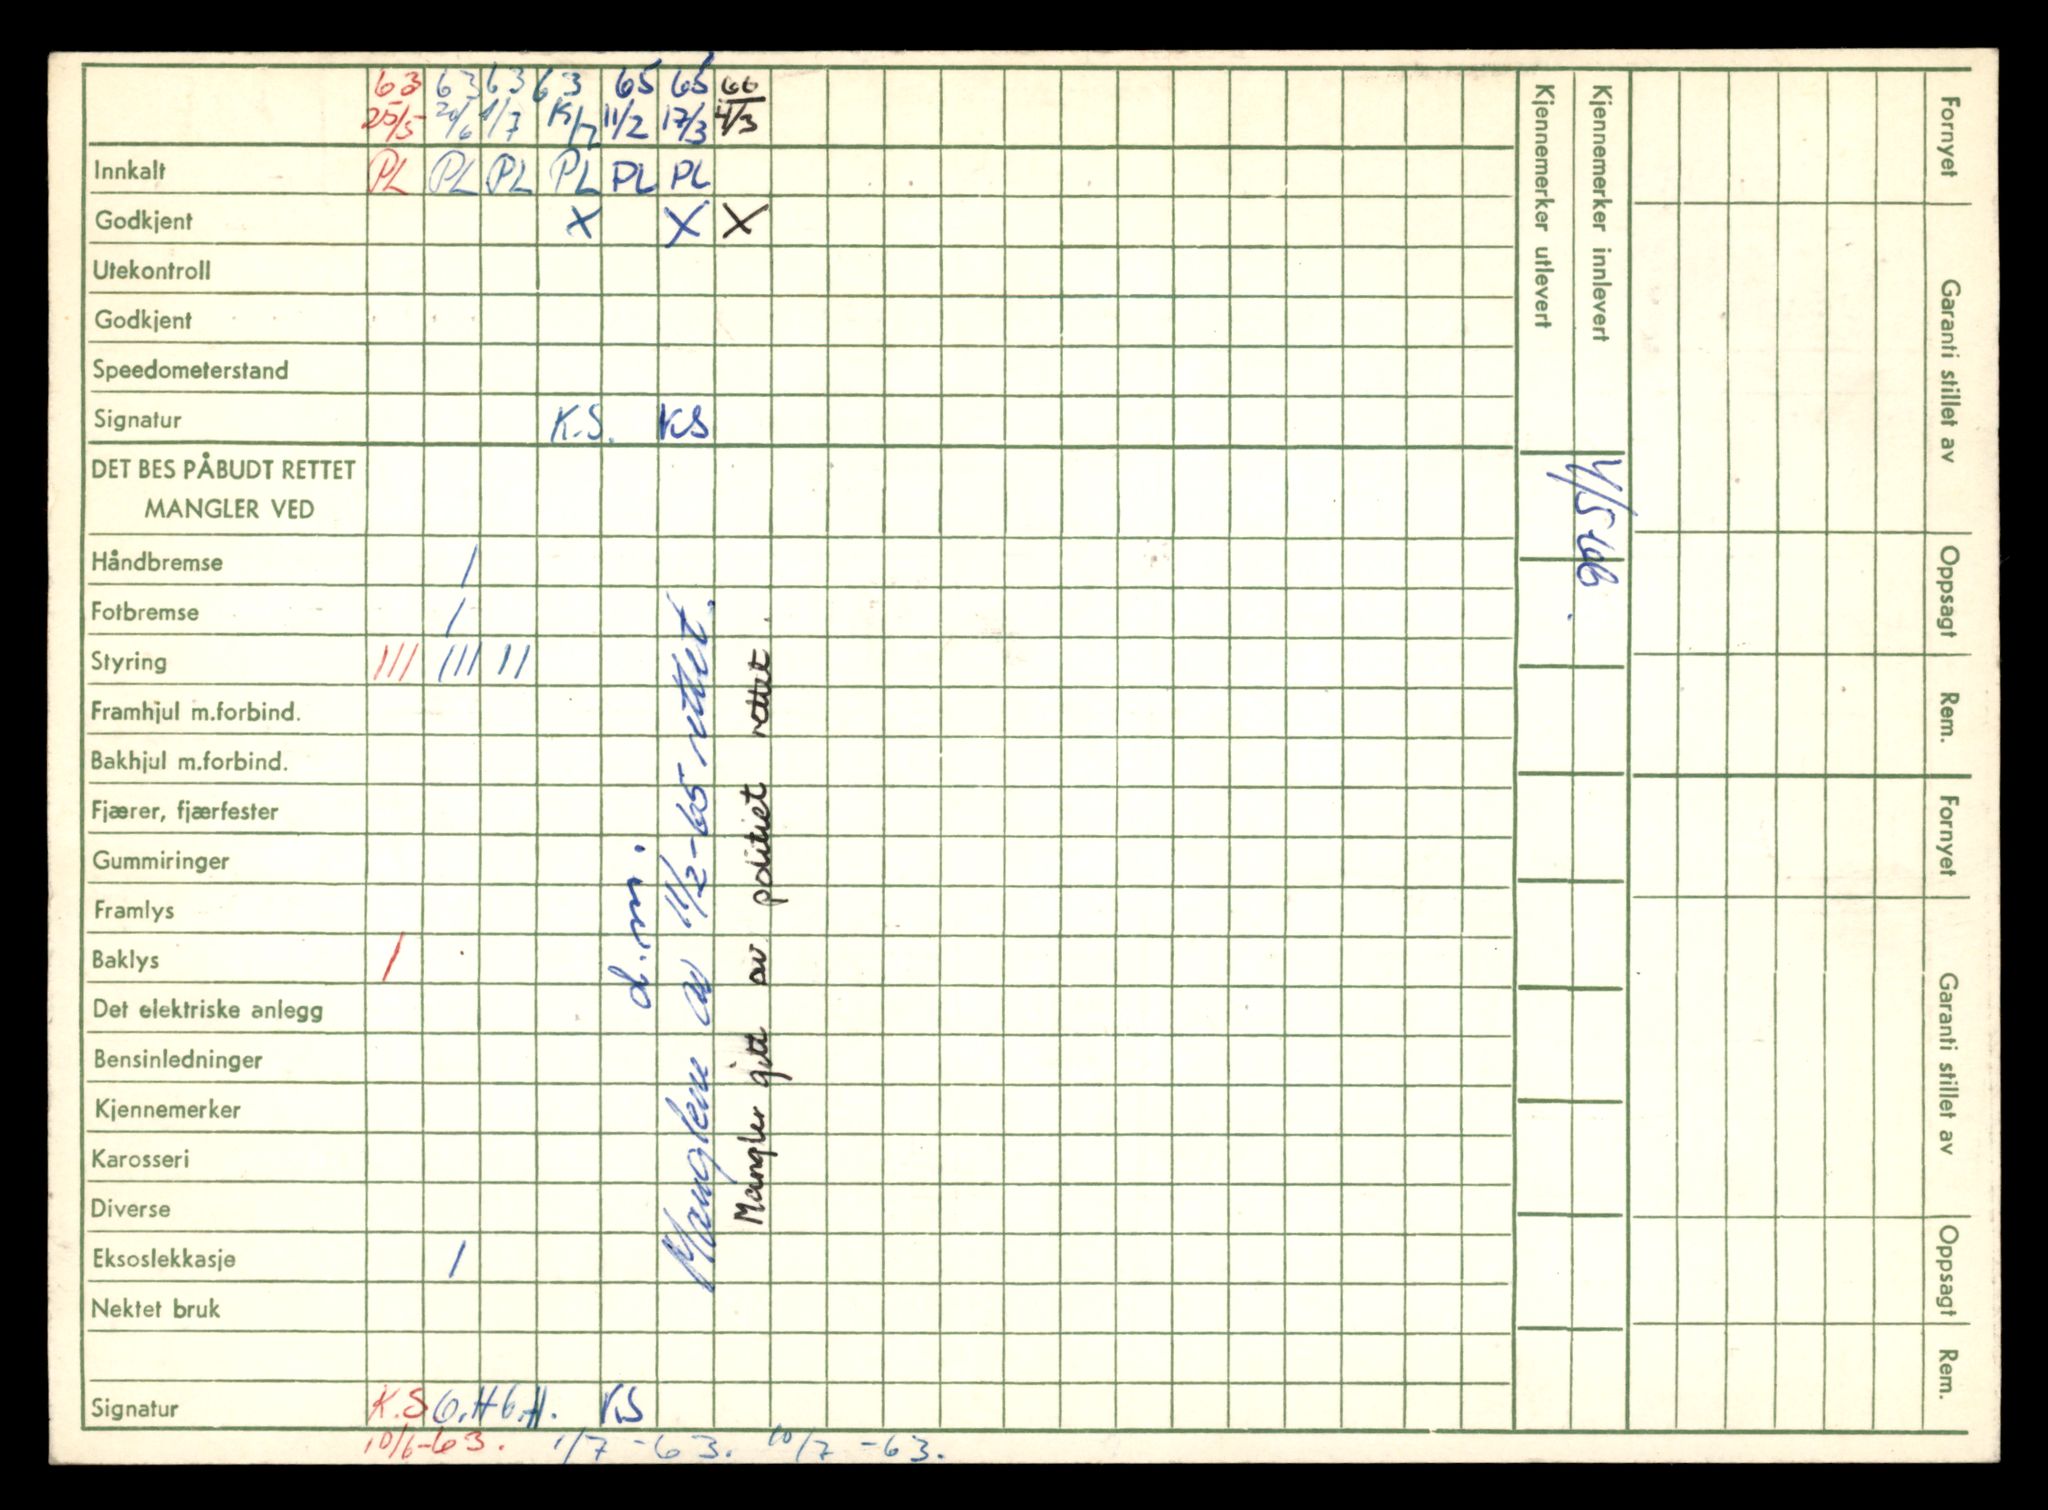 63 63 63 63 65 65 66
25/5 20/6 1/7 15/7 11/2 17/3 4/3
Innkalt PL PL PL PL PL PL
Godkjent X X X
Utekontroll
Godkjent
Speedometerstand
Signatur K.S. KS
DET BES PÅBUDT RETTET
MANGLER VED
Håndbremse /
Fotbremse /
Styring /// /// //
Framhjul m.forbind.
Bakhjul m.forbind.
Fjærer, fjærfester
Gummiringer
Framlys
Baklys /
Det elektriske anlegg
Bensinledninger
Kjennemerker
Karosseri
Diverse
Eksoslekkasje /
Nektet bruk
Signatur K.S G.H G.H. KS
10/6-63. 1/7-63. 10/7-63.
d.m.
Manglene av 11/2-65 rettet.
Mangler gitt av politiet rettet.
Kjennemerker utlevert
Kjennemerker innlevert
4/5-66.
Fornyet
Garanti stillet av
Oppsagt
Rem.
Fornyet
Garanti stillet av
Oppsagt
Rem.